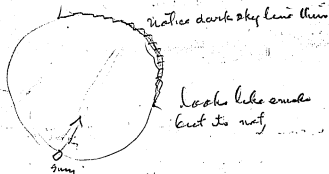 notice dark sky line this
looks like smoke
but its not,
Sun